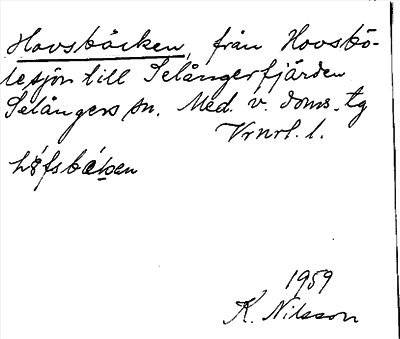 Hovsbäcken, från Hovsbö-
lesjön till Selångerfjärden
Selångers sn. Med. v. doms. tg
Vrnrl. l.
1959
K. Nilsson